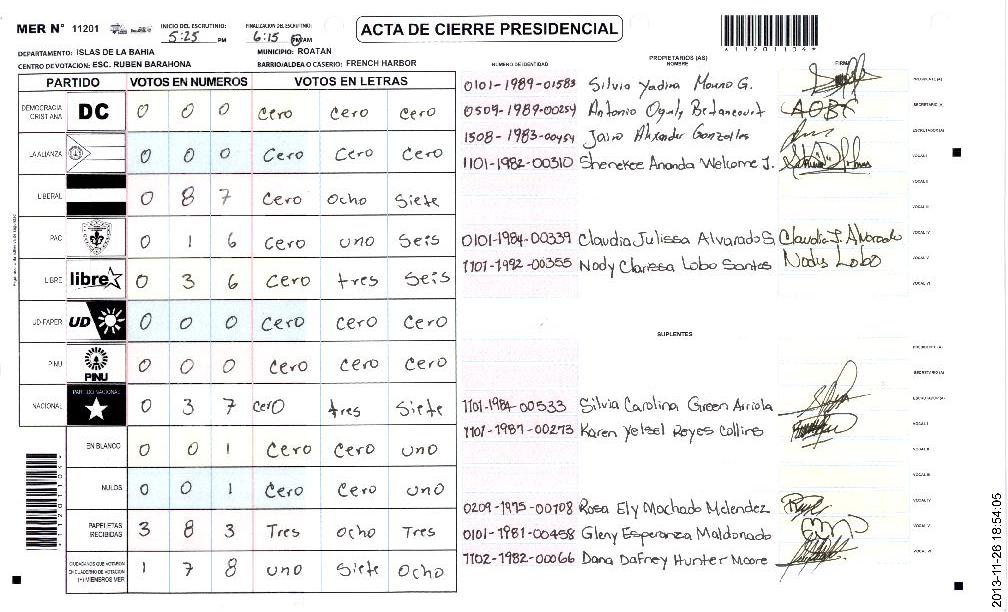 MER N° 11201
INICIO DEL ESCRUTINIO: 5:25 PM
FINALIZACION DEL ESCRUTINIO: 6:15 PM AM
ACTA DE CIERRE PRESIDENCIAL
DEPARTAMENTO: ISLAS DE LA BAHIA
MUNICIPIO: ROATAN
CENTRO DE VOTACION: ESC. RUBEN BARAHONA
BARRIO/ALDEA O CASERIO: FRENCH HARBOR
PARTIDO VOTOS EN NUMEROS VOTOS EN LETRAS
DEMOCRACIA CRISTIANA DC 0 0 0 Cero Cero Cero
LA ALIANZA 0 0 0 Cero Cero Cero
LIBERAL 0 8 7 Cero Ocho Siete
PAC 0 1 6 Cero uno Seis
LIBRE libre 0 3 6 Cero tres Seis
UD-FAPER UD 0 0 0 Cero Cero Cero
PINU PINU 0 0 0 Cero Cero Cero
NACIONAL PARTIDO NACIONAL 0 3 7 Cero tres Siete
EN BLANCO 0 0 1 Cero Cero uno
NULOS 0 0 1 Cero Cero uno
PAPELETAS RECIBIDAS 3 8 3 Tres Ocho Tres
CIUDADANOS QUE VOTARON EN CUADERNO DE VOTACION (+) MIEMBROS MER 1 7 8 uno Siete Ocho
*11201104*
PROPIETARIOS (AS)
NUMERO DE IDENTIDAD NOMBRE FIRMA
0101-1989-01583 Silvia Yadira G. PRESIDENTE (A)
0509-1989-00254 Antonio Betancourt AOBC SECRETARIO (A)
1508-1983-00454 Jairo Alexander Gonzalles ESCRUTADOR (A)
1101-1982-00310 Sherekee Ananda Welcome J. VOCAL I
VOCAL II
VOCAL III
0101-1984-00339 Claudia Julissa Alvarado S. Claudia J. Alvarado VOCAL IV
1101-1992-00355 Nody Clarissa Lobo Santos Nodys Lobo VOCAL V
VOCAL VI
SUPLENTES
PRESIDENTE (A)
SECRETARIO (A)
1101-1984-00533 Silvia Carolina Green Arriola ESCRUTADOR (A)
1101-1987-00273 Karen Yelsel Reyes Collins VOCAL I
VOCAL II
VOCAL III
0209-1975-00708 Rosa Ely Machado Melendez VOCAL IV
0101-1981-00458 Gleny Esperanza Maldonado VOCAL V
1102-1982-00066 Dana Dafrey Hunter Moore VOCAL VI
2013-11-26 18:54:05